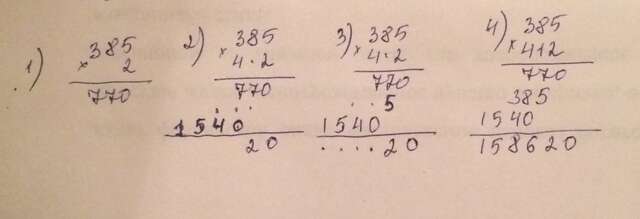 1) 385 2) 385 3) 385 4) 385
× 2 × 4·2 × 4·2 × 412
770 770 770 770
... ..5 385
1540 1540 1540
20 ....20 158620